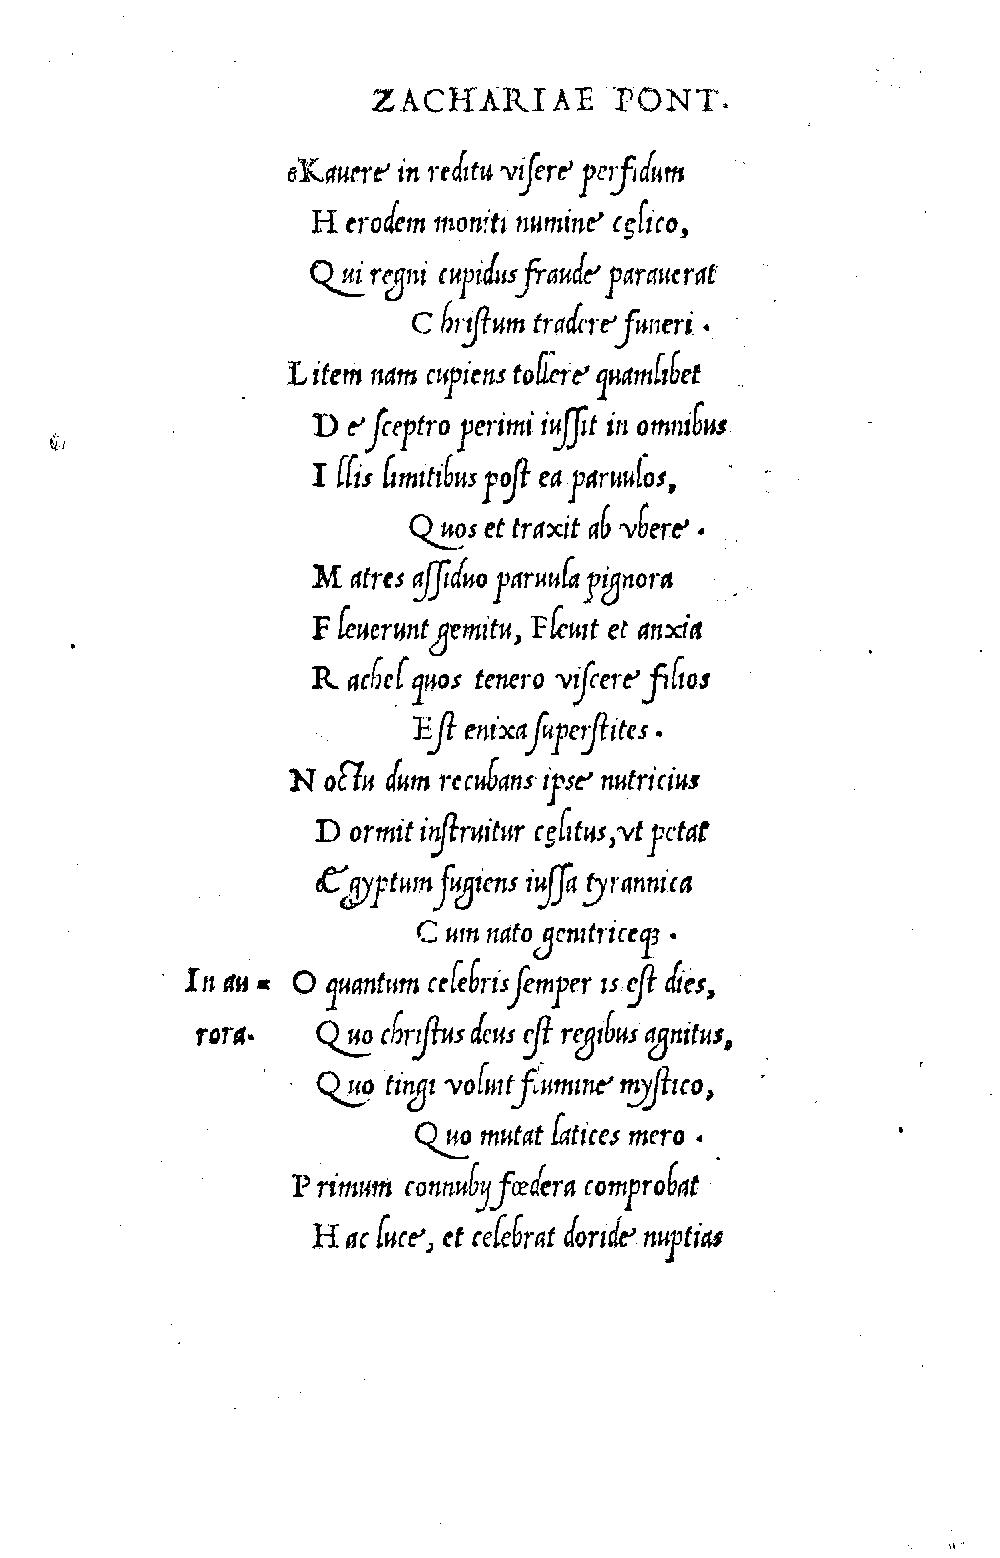 ZACHARIAE PONT.
Kauere in reditu viſere perfidum
Herodem moniti numine cęlico,
Qui regni cupidus fraude parauerat
Chriſtum tradere funeri.
Litem nam cupiens tollere quamlibet
De ſceptro perimi iuſſit in omnibus
Illis limitibus poſt ea paruulos,
Quos et traxit ab vbere.
Matres aſſiduo paruula pignora
Fleuerunt gemitu, Fleuit et anxia
Rachel quos tenero viſcere filios
Eſt enixa ſuperſtites.
Noctu dum recubans ipse nutricius
Dormit inſtruitur cęlitus, vt petat
Ægyptum fugiens iuſſa tyrannica
Cum nato genitriceqꝫ.
In au= O quantum celebris ſemper is eſt dies,
rora. Quo chriſtus deus eſt regibus agnitus,
Quo tingi voluit flumine myſtico,
Quo mutat latices mero.
Primum connubij fœdera comprobat
Hac luce, et celebrat doride nuptias